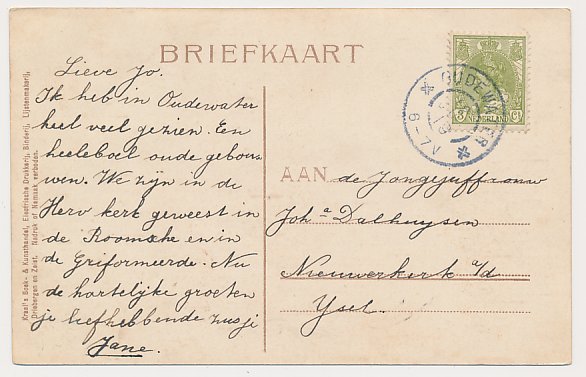 BRIEFKAART
Lieve Jo.
Ik heb in Oudewater
heel veel gezien. En
heeleboel oude gebou-
wen. We zijn in de
Herv kerk geweest in
de Roomsche en in
de Griformeerde. Nu
de hartelijke groeten
je liefhebbende zusje
Jane.
Kraal's Boek- & Kunsthandel, Electrische Drukkerij, Binderij, Lijstenmakerij,
Driebergen en Zeist. Nadruk of Namaak verboden.
AAN de Jongejuffrouw
Joha Dalhuysen
Nieuwerkerk a/d
Ysel.
OUDEWATER
6-7N
3 ct
NEDERLAND